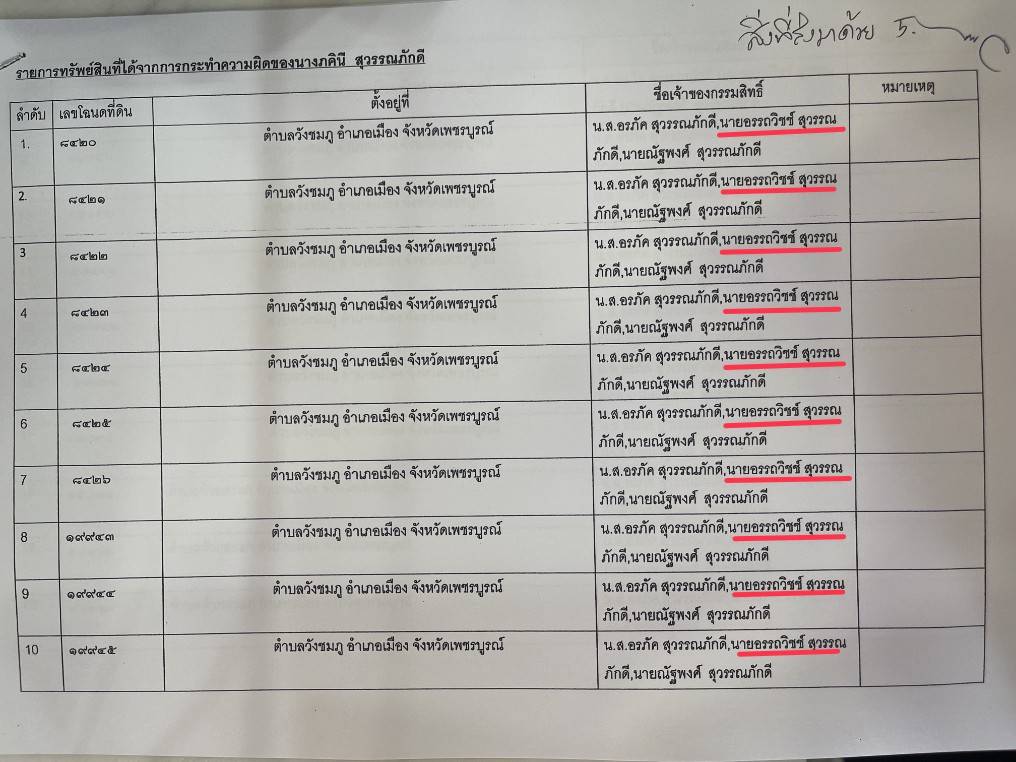 สิ่งที่ส่งมาด้วย 5.
รายการทรัพย์สินที่ได้จากการกระทำความผิดของนางภคินี สุวรรณภักดี
ลำดับ เลขโฉนดที่ดิน ตั้งอยู่ที่ ชื่อเจ้าของกรรมสิทธิ์ หมายเหตุ
1. ๘๔๒๐ ตำบลวังชมภู อำเภอเมือง จังหวัดเพชรบูรณ์ น.ส.อรภัค สุวรรณภักดี,นายอรรถวิชช์ สุวรรณ
ภักดี,นายณัฐพงศ์ สุวรรณภักดี
2. ๘๔๒๑ ตำบลวังชมภู อำเภอเมือง จังหวัดเพชรบูรณ์ น.ส.อรภัค สุวรรณภักดี,นายอรรถวิชช์ สุวรรณ
ภักดี,นายณัฐพงศ์ สุวรรณภักดี
3 ๘๔๒๒ ตำบลวังชมภู อำเภอเมือง จังหวัดเพชรบูรณ์ น.ส.อรภัค สุวรรณภักดี,นายอรรถวิชช์ สุวรรณ
ภักดี,นายณัฐพงศ์ สุวรรณภักดี
4 ๘๔๒๓ ตำบลวังชมภู อำเภอเมือง จังหวัดเพชรบูรณ์ น.ส.อรภัค สุวรรณภักดี,นายอรรถวิชช์ สุวรรณ
ภักดี,นายณัฐพงศ์ สุวรรณภักดี
5 ๘๔๒๔ ตำบลวังชมภู อำเภอเมือง จังหวัดเพชรบูรณ์ น.ส.อรภัค สุวรรณภักดี,นายอรรถวิชช์ สุวรรณ
ภักดี,นายณัฐพงศ์ สุวรรณภักดี
6 ๘๔๒๕ ตำบลวังชมภู อำเภอเมือง จังหวัดเพชรบูรณ์ น.ส.อรภัค สุวรรณภักดี,นายอรรถวิชช์ สุวรรณ
ภักดี,นายณัฐพงศ์ สุวรรณภักดี
7 ๘๔๒๖ ตำบลวังชมภู อำเภอเมือง จังหวัดเพชรบูรณ์ น.ส.อรภัค สุวรรณภักดี,นายอรรถวิชช์ สุวรรณ
ภักดี,นายณัฐพงศ์ สุวรรณภักดี
8 ๑๙๙๔๓ ตำบลวังชมภู อำเภอเมือง จังหวัดเพชรบูรณ์ น.ส.อรภัค สุวรรณภักดี,นายอรรถวิชช์ สุวรรณ
ภักดี,นายณัฐพงศ์ สุวรรณภักดี
9 ๑๙๙๔๔ ตำบลวังชมภู อำเภอเมือง จังหวัดเพชรบูรณ์ น.ส.อรภัค สุวรรณภักดี,นายอรรถวิชช์ สุวรรณ
ภักดี,นายณัฐพงศ์ สุวรรณภักดี
10 ๑๙๙๔๕ ตำบลวังชมภู อำเภอเมือง จังหวัดเพชรบูรณ์ น.ส.อรภัค สุวรรณภักดี,นายอรรถวิชช์ สุวรรณ
ภักดี,นายณัฐพงศ์ สุวรรณภักดี